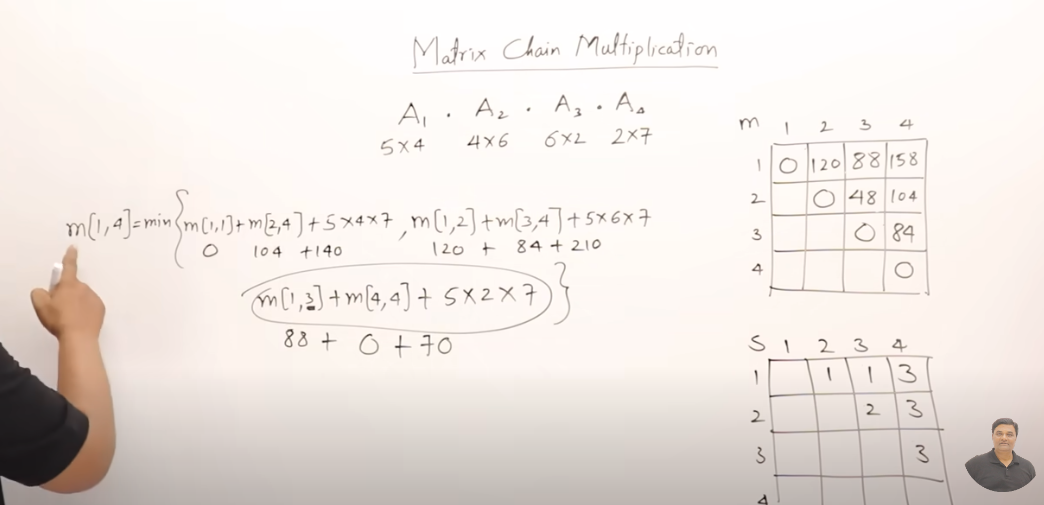 Matrix Chain Multiplication
A₁ . A₂ . A₃ . A₄
5×4 4×6 6×2 2×7
m[1,4]=min{m[1,1]+m[2,4]+5×4×7, m[1,2]+m[3,4]+5×6×7
0 104 +140 120 + 84+210
m[1,3]+m[4,4]+5×2×7}
88+ 0+70
m 1 2 3 4
1 0 120 88 158
2 0 48 104
3 0 84
4 0
S 1 2 3 4
1 1 1 3
2 2 3
3 3
4